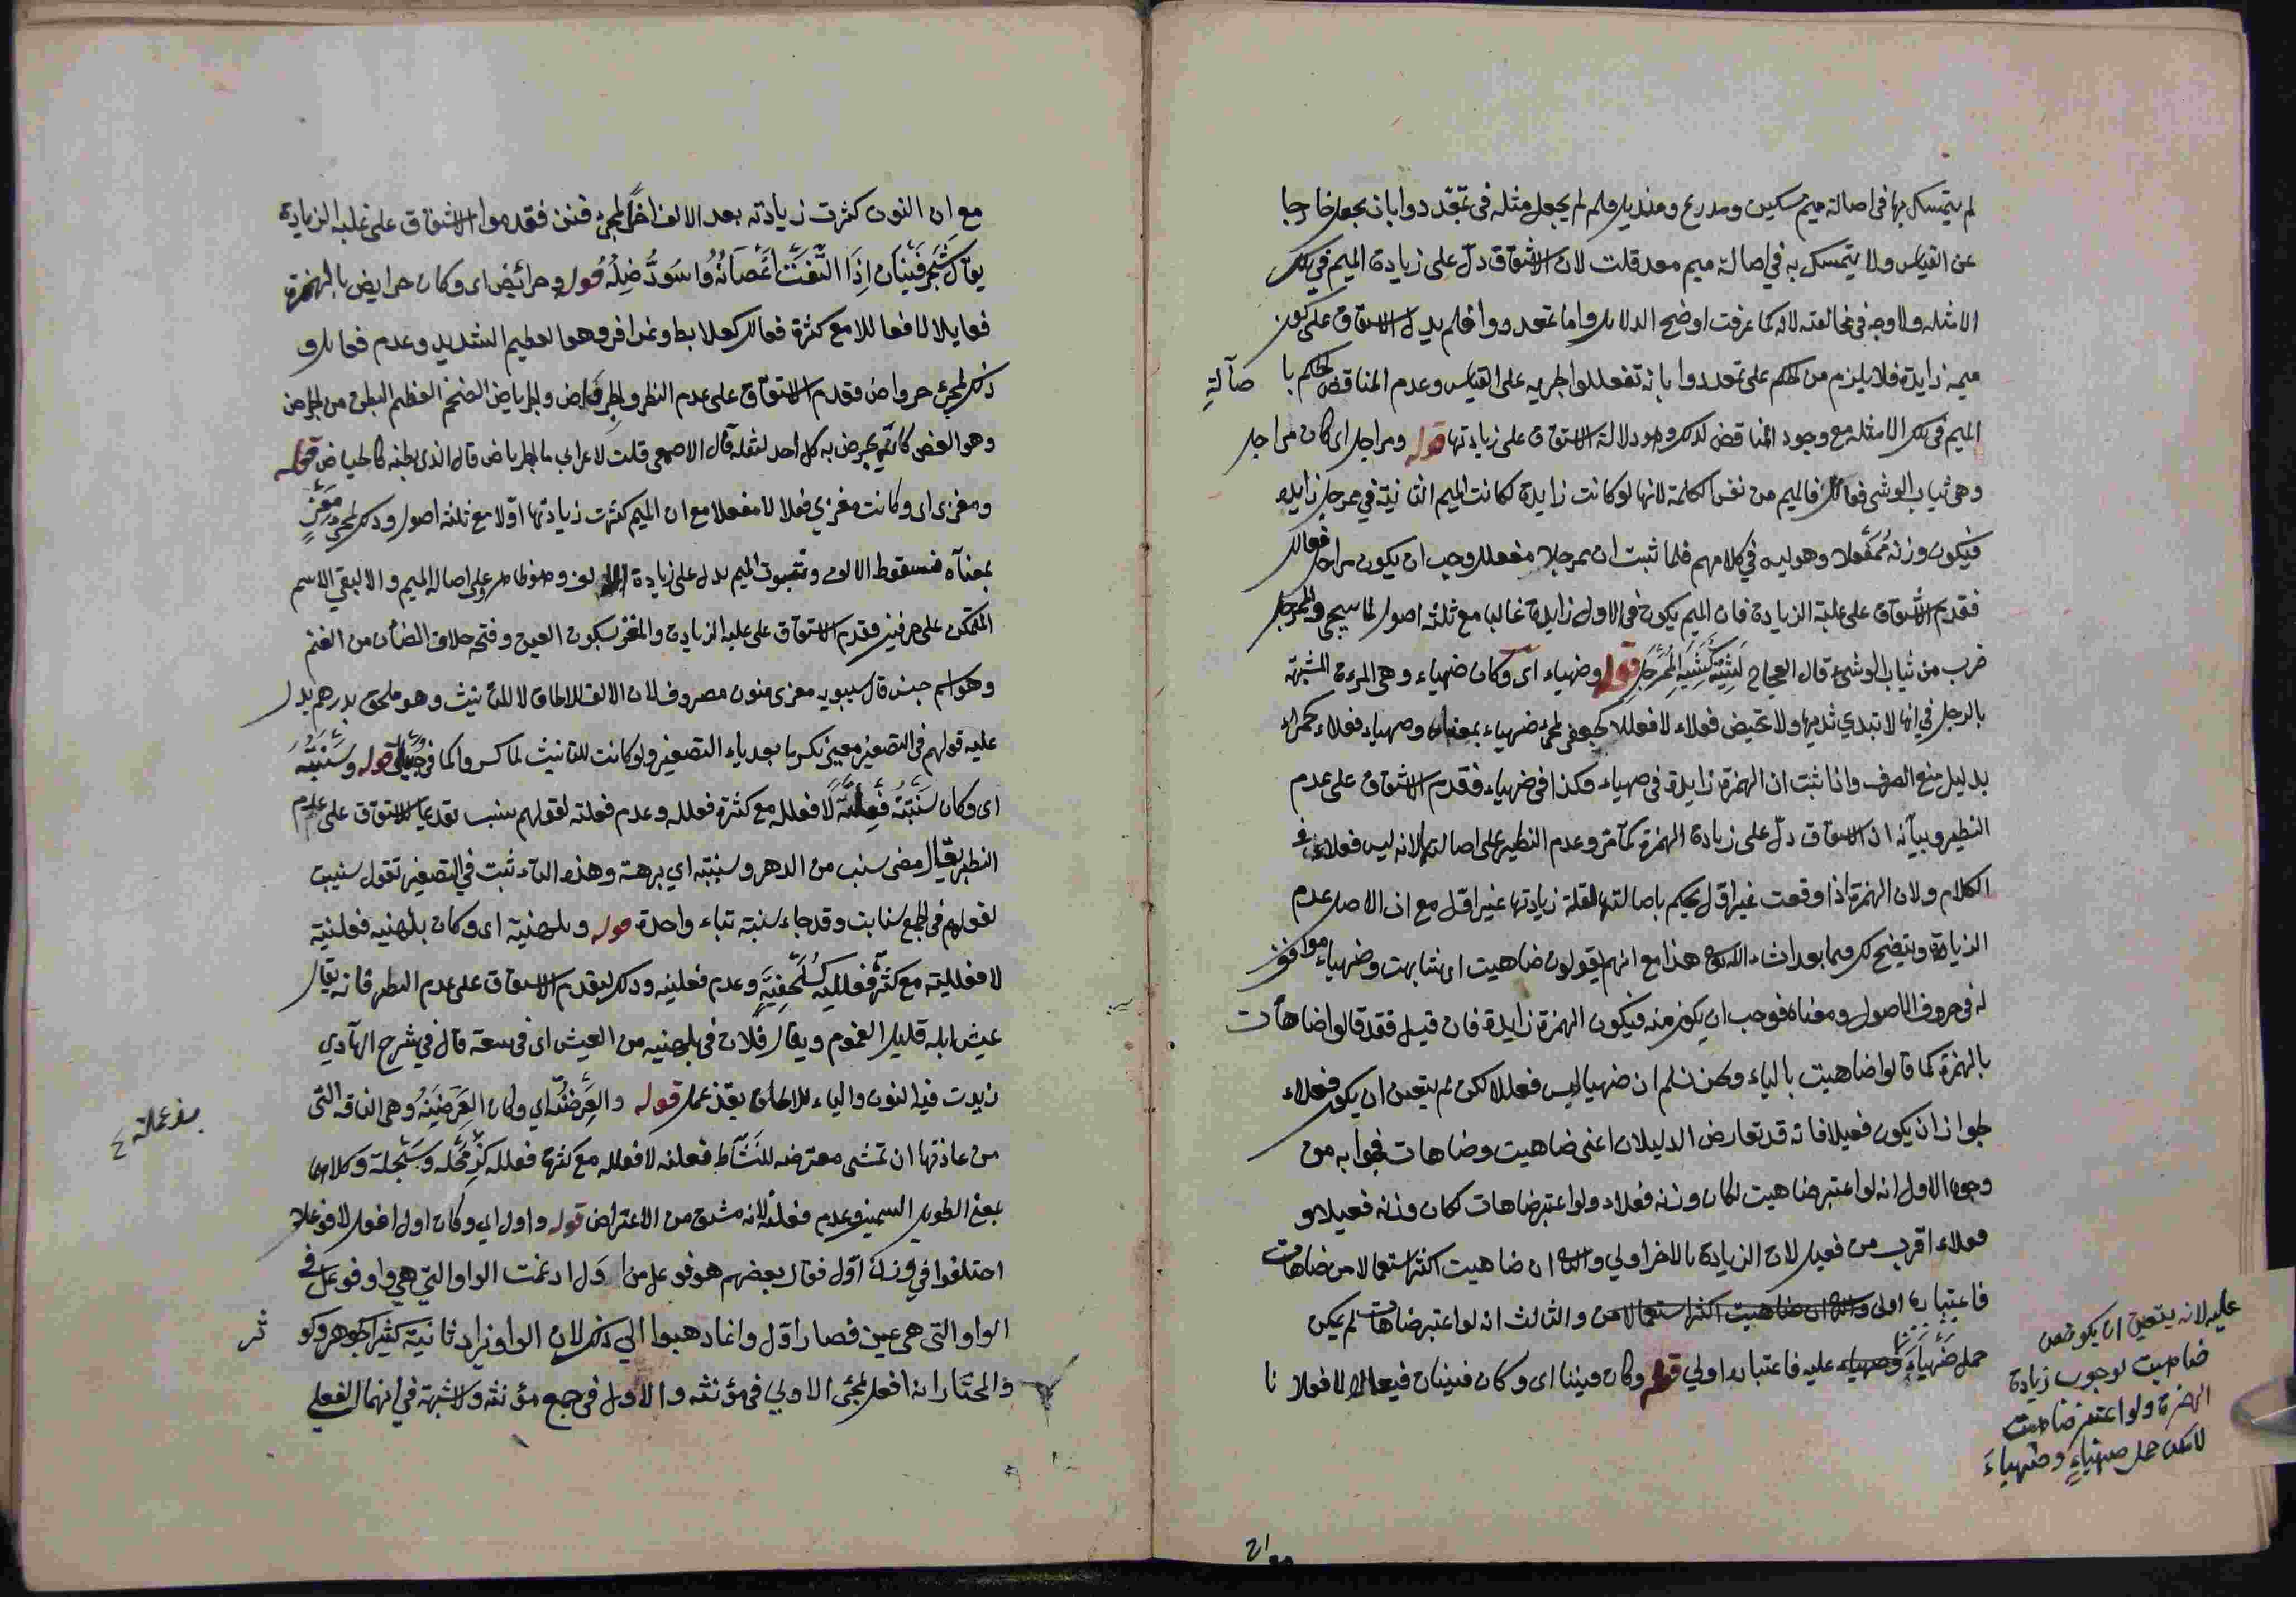 لم يتمسك بها في اصالة ميم سكين ومدرع ومنديل فلم لم يجعل مثله في تمعددوا بان يجعل خارجا
عن القياس ولا يتمسك به في اصالة ميم معد قلت لان الاشتقاق دل على زيادة الميم في تلك
الامثله ولا وجه في مخالفته لانه كما عرفت اوضح الدلايل واما تمعددوا فلم يدل الاشتقاق على كون
ميمه زايدة فلا يلزم من الحكم على تمعددوا بانه تفعللوا لجريه على القياس وعدم المناقض الحكم با صالة
الميم في تلك الامثله مع وجود المناقض لذلك وهو دلالة الاشتقاق على زيادتها قوله ومراجل اى كان مراجل
وهى ثياب الوشى فعالل فالميم من نفس الكلمة لانها لو كانت زايدة لكانت الميم الثانية في ممرجل زايدة
فيكون وزنه ممفعلا وهو ليس في كلامهم فلما ثبت ان ممرجلا مفعلل وجب ان يكون مراجل فعالل
فقدم الاشتقاق على غلبة الزيادة فان الميم يكون في الاول زايدة غالبا مع ثلثه اصول لما سيجئ والممرجل
ضرب من ثياب الوشى قال العجاج بشية كشية الممرجل قوله وضهياء اى وكان ضهياء وهى المرءة المشبهة
بالرجل في انها لا تبدى ثديها ولا تحيض فعلاء لا فعللا كجعفر لمجئ ضهياء بمعناه وضهياء فعلاء كحمراء
بدليل منع الصرف واذا ثبت ان الهمزة زايدة في ضهياء فكذا في ضهياء فقدم الاشتقاق على عدم
النظير وبيانه ان الاشتقاق دل على زيادة الهمزة كما مر وعدم النظير على اصالتها لانه ليس فعلاء في
الكلام ولان الهمزة اذا وقعت غير اول يحكم باصالتها لقلة زيادتها غير اول مع ان الاصل عدم
الزيادة ويتضح لك فيما بعد ان شاء الله تعالى هذا مع انهم يقولون ضاهيت اى شابهت وضهياء موافق
له في حروف الاصول ومعناه فوجب ان يكون منه فيكون الهمزة زايدة فان قيل فقد قالوا ضاهأت
بالهمزة كما قالوا ضاهيت بالياء ونحن نسلم ان ضهيا ليس فعللا لكن لم يتعين ان يكون فعلاء
لجواز ان يكون فعيلا فانه قد تعارض الدليلان اعنى ضاهيت وضاهأت فجوابه من
وجوه الاول انه لو اعتبر ضاهيت لكان وزنه فعلاء ولو اعتبر ضاهات لكان وزنه فعيلا و
فعلاء اقرب من فعيل لان الزيادة بالاخر اولى والثانى ان ضاهيت اكثر استعمالا من ضاهات
فاعتباره اولى والثالث انه لو اعتبر ضاهات لم يمكن
حمل ضهياء عليه فاعتباره اولى قوله وكان فينا اى وكان فينان فيعالا لا فعلانا
عليه لانه يتعين ان يكون من
ضاهيت لوجوب زيادة
الهمزة ولو اعتبر ضاهيت
لامكن حمل ضهياء وضهياء
مع ان النون كثرت زيادته بعد الالف اخرا لمجئ فنن فقدموا الاشتقاق على غلبه الزيادة
يقال شجر فينان اذا التفت اغصانه واسود ظله قوله وجرائض اى وكان جرايض بالهمزة
فعايلا لا فعاللا مع كثرة فعالل كعلابط وعذافر وهو العظيم الشديد وعدم فعايل و
ذلك لمجئ جرواض فقدم الاشتقاق على عدم النظير والجرفاض والجرياض الضخم العظيم البطن من الجرض
وهو الغصص كانه يجرض به كل احد لثقله قال الاصمعى قلت لاعرابى ما الجرياض قال الذى بطنه كالحياض قوله
ومعزى اى وكانت معزى فعلا لا مفعلا مع ان الميم كثرت زيادتها اولا مع ثلثه اصول وذلك لمجئ معز
بمعناه فسقوط الالف وثبوت الميم يدل على زيادة الالف وهو ظاهر وعلى اصالة الميم والا لبقى الاسم
المتمكن على حرفين فقدم الاشتقاق على غلبه الزيادة والمعز بسكون العين وفتحه خلاف الضان من الغنم
وهو اسم جنس قال سيبويه معزى منون مصروف لان الالف للالحاق لا للتانيث وهو ملحق بدرهم يدل
عليه قولهم في التصغير معيز بكسر ما بعد ياء التصغير ولو كانت للتانيث لما كسروا كما في حبيلى قوله وسنبتة
اى وكان سنبتة فعلتة لا فعلله مع كثرة فعلله وعدم فعلته لقولهم سنب تقديما للاشتقاق على عدم
النظير يقال مضى سنب من الدهر وسنبته اى برهة وهذه التاء ثبت في التصغير تقول سنيبت
لقولهم في الجمع سنابت وقد جاء سنبة بتاء واحدة قوله وبلهنية اى وكان بلهنيه فعلنية
لا فعللية مع كثرة فعللية كسلحفية وعدم فعلنيه وذلك لتقدم الاشتقاق على عدم النظير فانه يقال
عيش ابله قليل الغموم ويقال فلان في بلهنيه من العيش اى في سعة قال في شرح الهادى
زيدت فيه النون والياء للالحاق بقذعمل قوله والعرضنة اى وكان العرضنة وهى الناقه التى
من عادتها ان تمشى معترضه للنشاط فعلنه لا فعلله مع كثرة فعلله كزمحله وسبحلة وكلاهما
بمعنى الطويل السمين وعدم فعلنة لانه مشتق من الاعتراض قوله واول اى وكان اول افعل لا فوعلا
اختلفوا في وزن اول فقال بعضهم هو فوعل من ا ول ادغمت الواو التى هى واو فوعل في
الواو التى هى عين فصار اول وانما ذهبوا الى ذلك لان الواو يزاد ثانية كثيرا كجوهر وكو ثر
والمختار انه افعل لمجئى الاولى في مؤنثه والاول في جمع مؤنثه ولا شبهة في انهما الفعلى